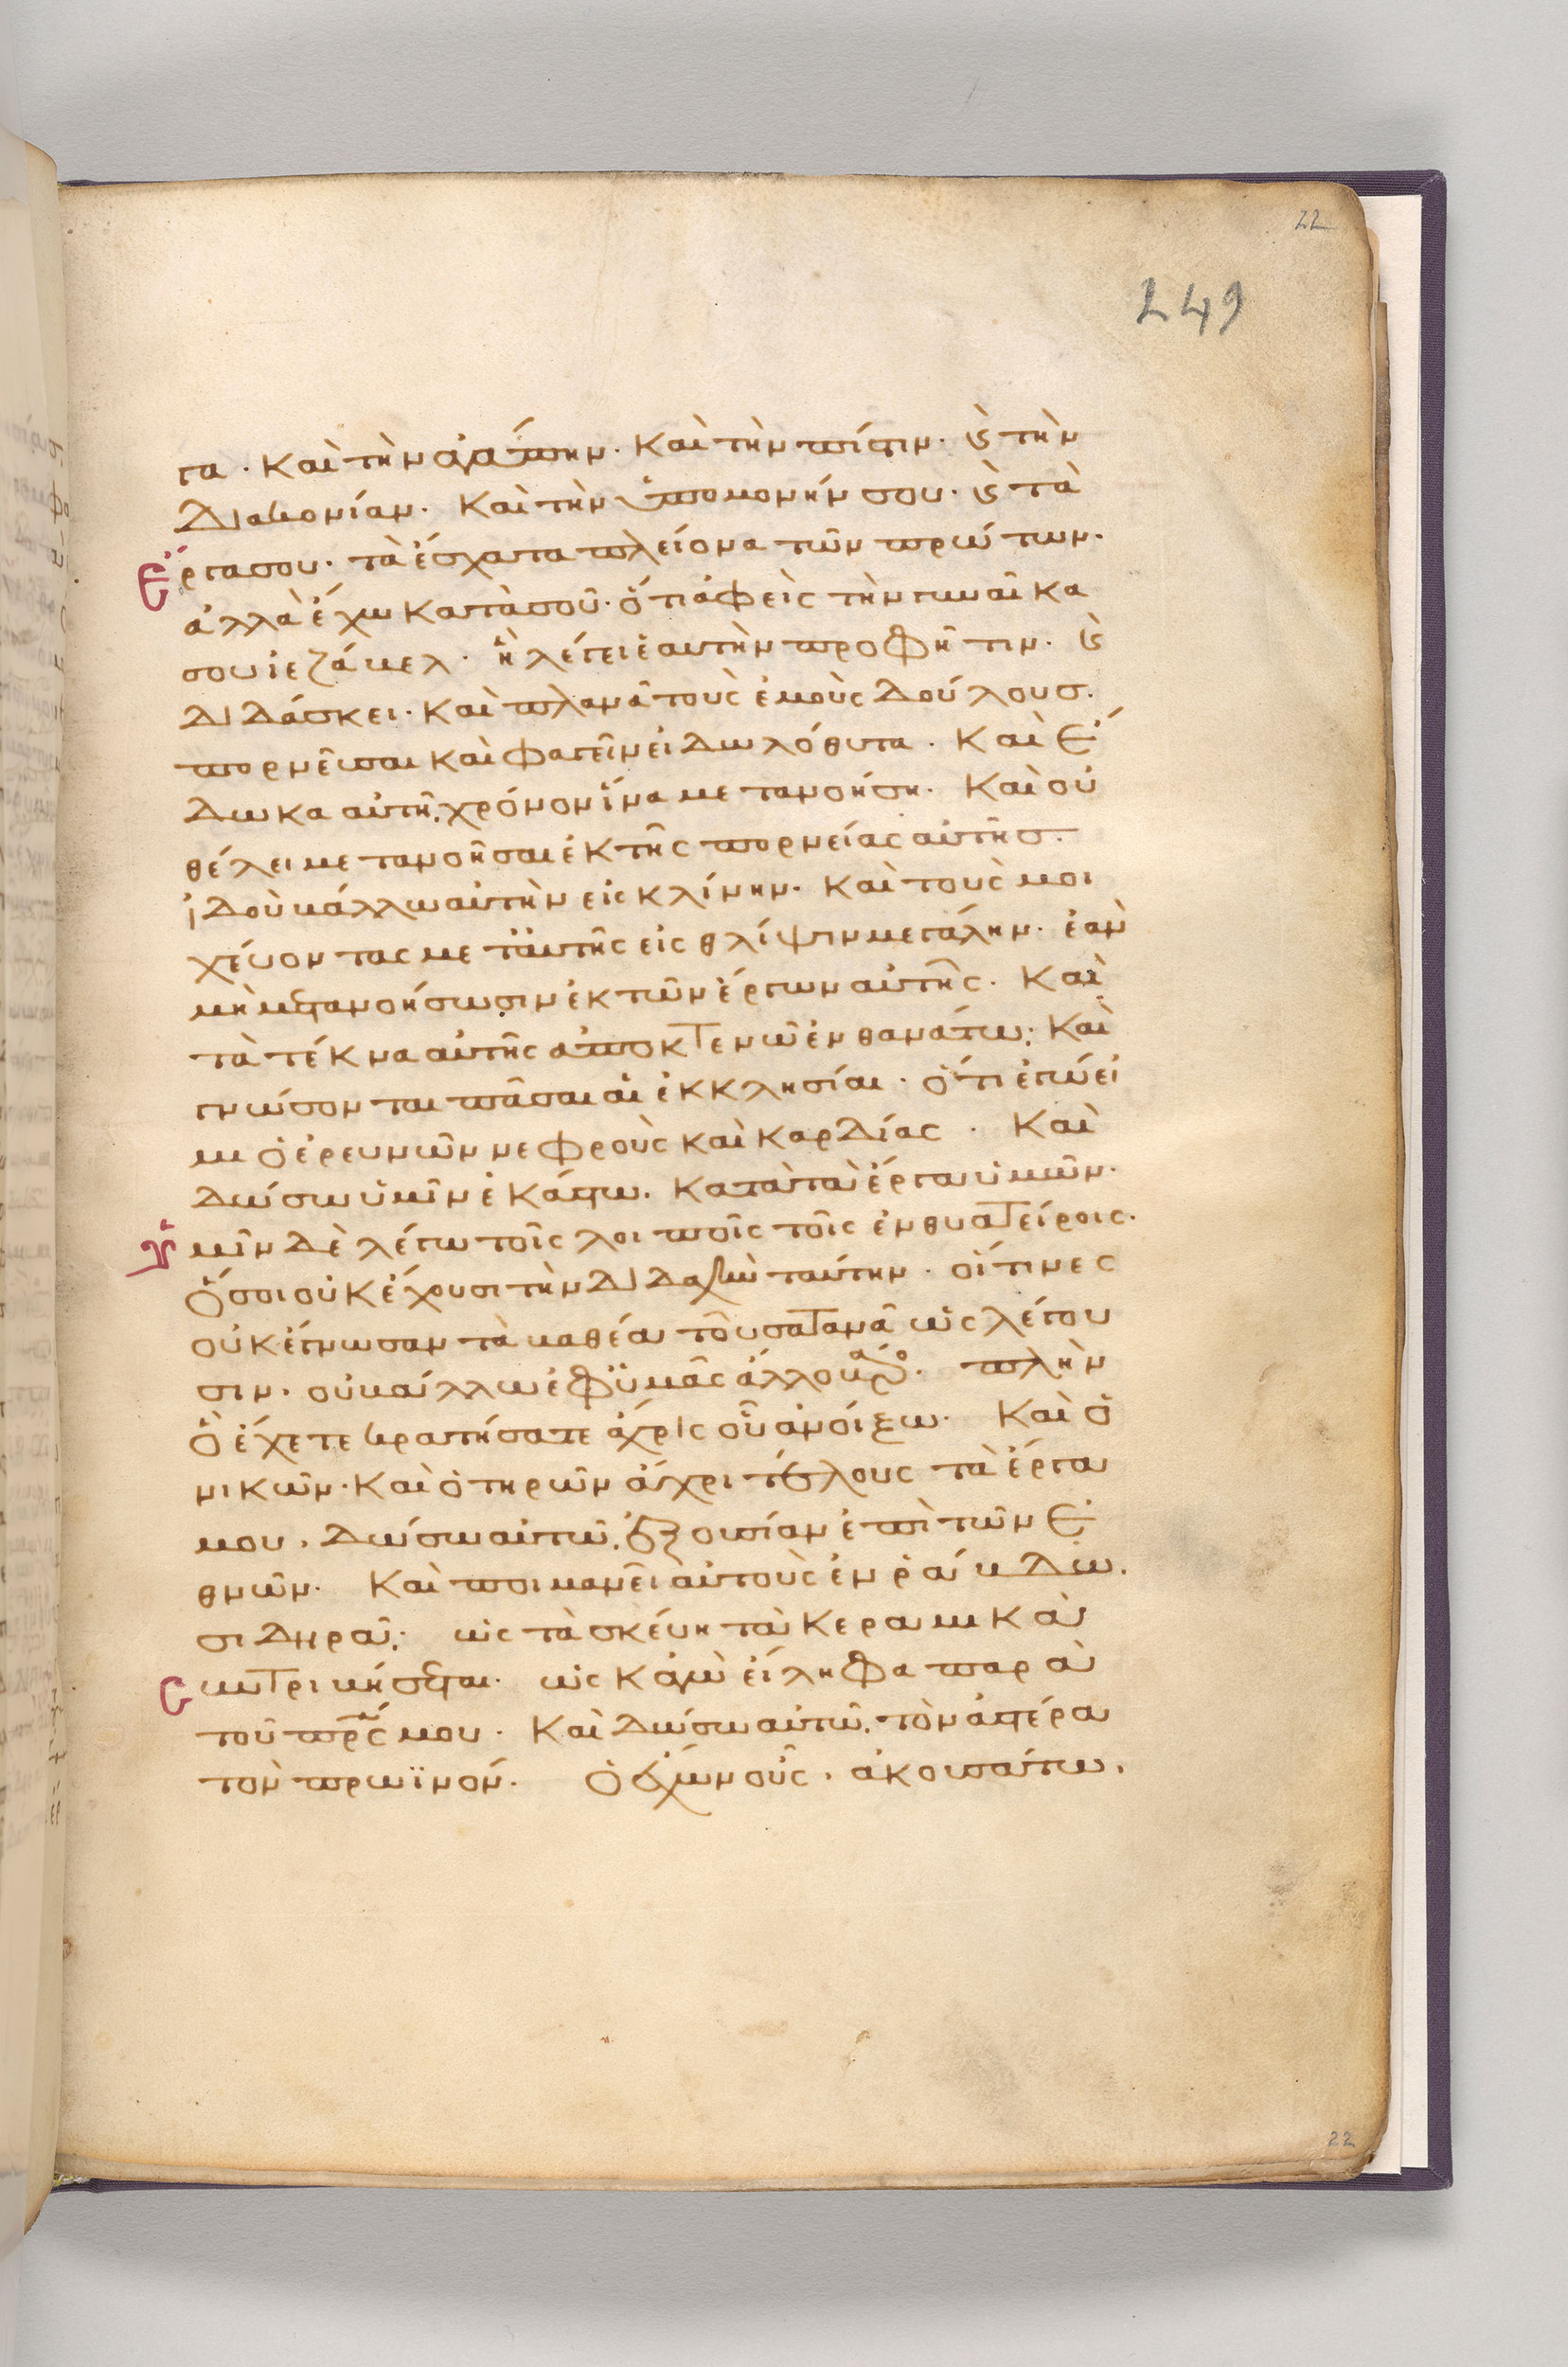 22
249
γα · καὶ τὴν ἀγάπην · καὶ τὴν πίστιν · ϗ τὴν
διακονίαν · καὶ τὴν ὑπομονήν σου · ϗ τὰ
ἔργα σου · τὰ ἔσχατα πλείονα τῶν πρώτων ·
ἀλλὰ ἔχω κατὰ σοῦ · ὅτι ἀφεὶς τὴν γυναῖκα
σου ἰεζάβελ · ἣ λέγει ἑαυτὴν προφῆτιν · ϗ
διδάσκει · καὶ πλανᾶ τοὺς ἐμοὺς δούλουσ ·
πορνεῦσαι καὶ φαγεῖν εἰδωλόθυτα · καὶ ἔ
δωκα αὐτῆ, χρόνον ἵνα μετανοήση · καὶ οὐ
θέλει μετανοῆσαι ἐκ τῆς πορνείας αὐτῆσ ·
ἰδοὺ βάλλω αὐτὴν εἰς κλίνην · καὶ τοὺς μοι
χεύοντας μετ᾽ αὐτῆς εἰς θλίψιν μεγάλην · ἐὰν
μὴ μετανοήσωσιν ἐκ τῶν ἔργων αὐτῆς · καὶ
τὰ τέκνα αὐτῆς ἀποκτενῶ ἐν θανάτω · καὶ
γνώσονται πᾶσαι αἱ ἐκκλησίαι · ὅτι ἐγώ εἰ
μι ὁ ἐρευνῶν νεφροὺς καὶ καρδίας · καὶ
δώσω ὑμῖν ἑκάστω · κατὰ τὰ ἔργα ὑμῶν ·
ὑμῖν δὲ λέγω τοῖς λοιποῖς τοῖς ἐν θυατείροις ·
ὅσοι οὐκ ἔχουσι τὴν διδαχὴν ταύτην · οἵτινες
οὐκ ἔγνωσαν τὰ βαθέα τοῦ σατανᾶ ὡς λέγου
σιν · οὐ βάλλω ἐφ᾽ ὑμᾶς ἄλλο βάρος · πλὴν
ὃ ἔχετε κρατήσατε ἄχρις οὗ ἀνοίξω · καὶ ὁ
νικῶν · καὶ ὁ τηρῶν ἄχρι τέλους τὰ ἔργα
μου · δώσω αὐτῶ, ἐξουσίαν ἐπὶ τῶν ἐ
θνῶν · καὶ ποιμανεῖ αὐτοὺς ἐν ῥάβδω ·
σιδηρᾶ · ὡς τὰ σκεύη τὰ κεραμικὰ
συντριβήσεται · ὡς κἀγὼ εἴληφα παρὰ
τοῦ πρς μου · καὶ δώσω αὐτῶ, τὸν ἀστέρα
τὸν πρωϊνόν · ὁ ἔχων οὖς · ἀκουσάτω ·
22